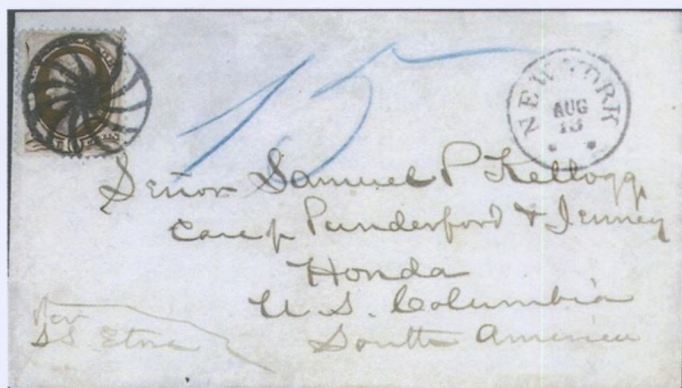 15
NEW YORK
AUG
13
Señor Samuel P Kellogg
Care of Punderford & Jenney
Honda
U. S. Columbia
South America
Per
SS Etna